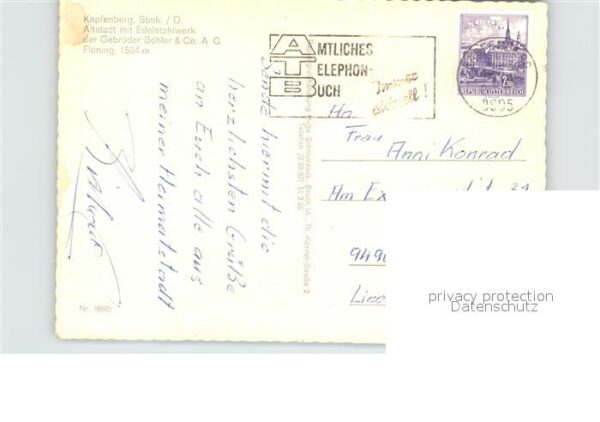 Kapfenberg, Stmk. / O.
Altstadt mit Edelstahlwerk
der Gebrüder Böhler & Co. A. G.
Floning, 1584 m
AMTLICHES
TELEPHON-
BUCH
Immer
aktuell!
REPUBLIK ÖSTERREICH
8605
Sende hiermit die
herzlichsten Grüße
an Euch alle aus
meiner Heimatstadt
An
Frau Anni Konrad
Am
949
Lie
Nr. 1660
privacy protection
Datenschutz